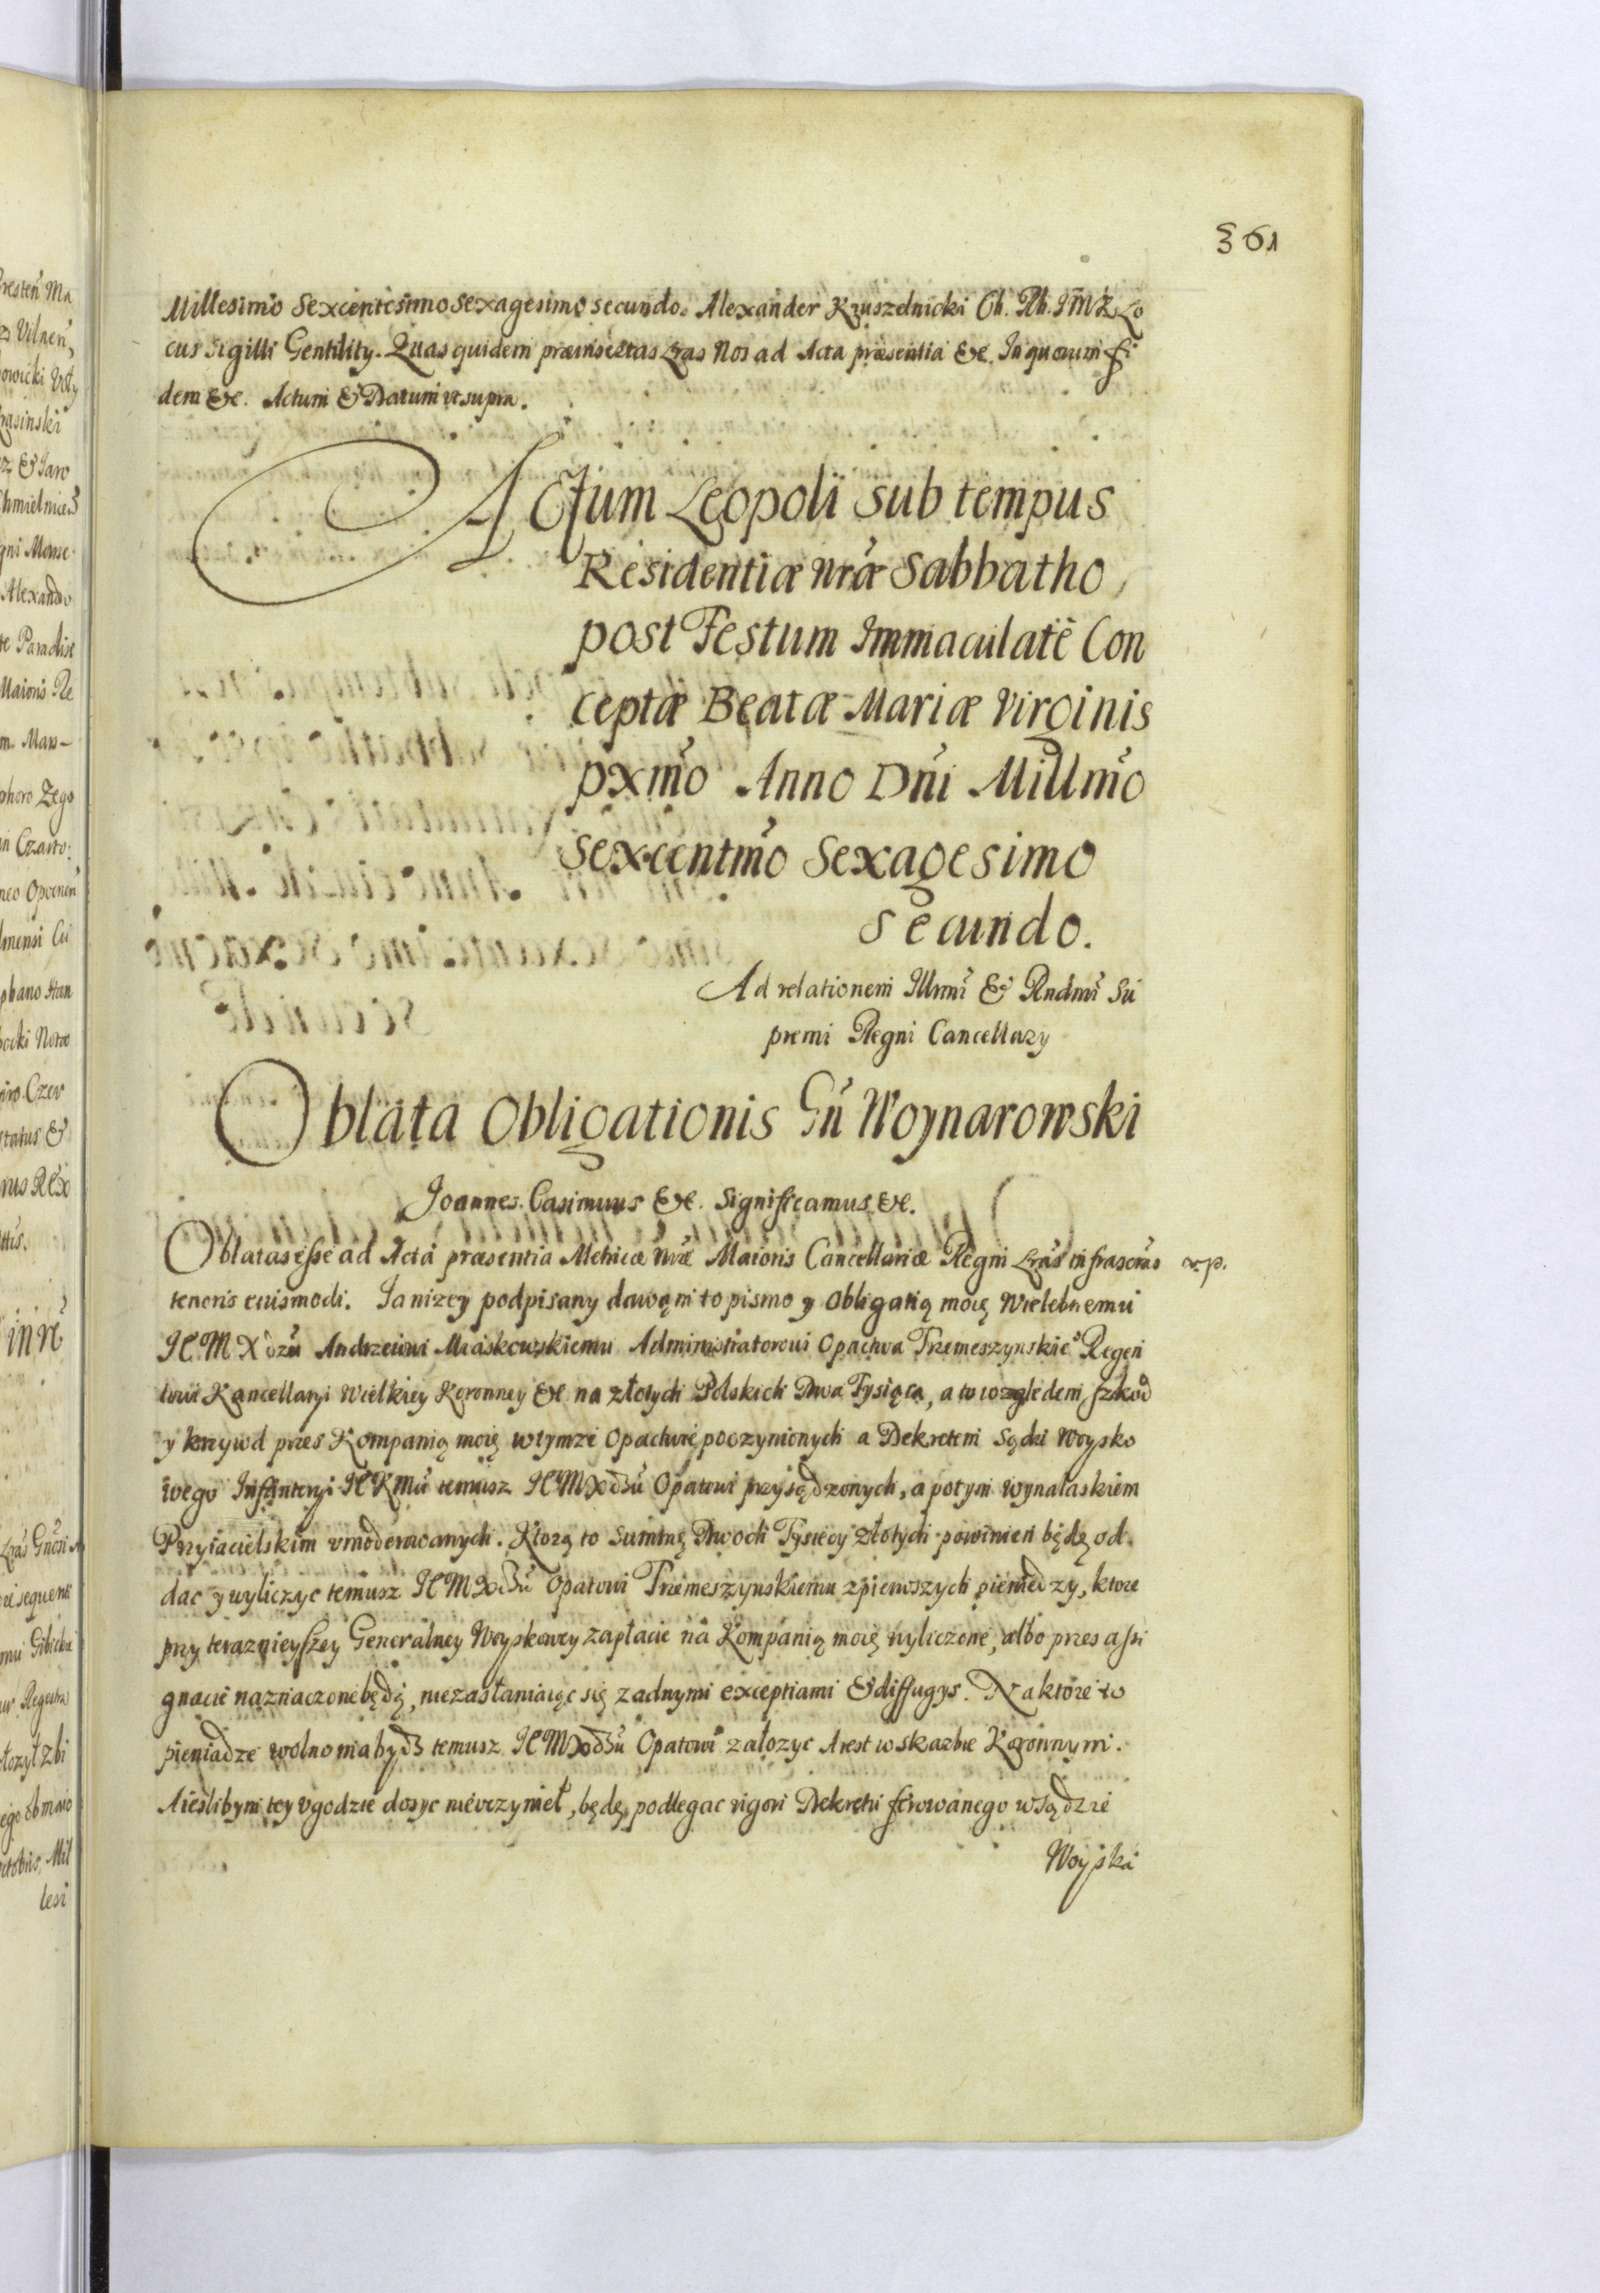 361
Millesimo Sexcentesimo Sexagesimo secundo. Alexander Kruszelnicki Ch. Rh. JMK Lo
cus Sigilli Gentility. Quas quidem præinsertas Lras Nos ad Acta præsentia &c. In quorum fi
dem &c. Actum & Datum ut supra.
Actum Leopoli Sub tempus
Residentiæ nræ Sabbatho
post Festum Immaculatê Con
ceptæ Beatæ Mariæ Virginis
pxmo Anno Dni Millmo
Sexcentmo Sexagesimo
Secundo.
Ad relationem Illmi & Rndmi Su
premi Regni Cancellary
Oblata Obligationis Gn Woynarowski
Joannes Casimirus &c. Significamus &c.
Oblatas esse ad Acta præsentia Methicæ nræ Maioris Cancellariæ Regni Lras infrascras
tenoris euismodi. Ja nizey podpisany dawąm to pismo y obligatią moię Wielebnemu
JEM Xdzu Andrzeiowi Miaskowskiemu Administratorowi Opactwa Trzemeszynskie Regen
towi Kancellaryi Wielkiey Koronney &c na złotych Polskich Dwa Tysiąca, a to względem szkod
y krzywd przes Kompanią moię wtymze Opactwie poczynionych a Dekretem Sądu Woysko
wego Infanteryi JEKMci temusz JEM Xdzu Opatowi przysądzonych, a potym wynalaskiem
Przyiacielskim vmoderowanych. Ktorą to Summę Dwoch Tysięcy złotych powinien będę od
dac y wyliczyc temusz JEM Xdzu Opatowi Trzemeszynskiemu z pierwszych pieniedzy, ktore
przy teraznieyszey Generalney Woyskowey zapłacie na Kompanią moię wyliczone, albo przes assi
gnacie naznaczone będą, niezasłaniaiąc się zadnymi exceptiami & diffugys. Na ktore to
pieniadze wolno ma bydz temusz JEM Xdzu Opatowi załozyc Arest w skarbie Koronnym.
A iesliby tey vgodzie dosyc nievczynieł, będę podlegac rigori Dekretu ferowanego w sądzie
Woyska